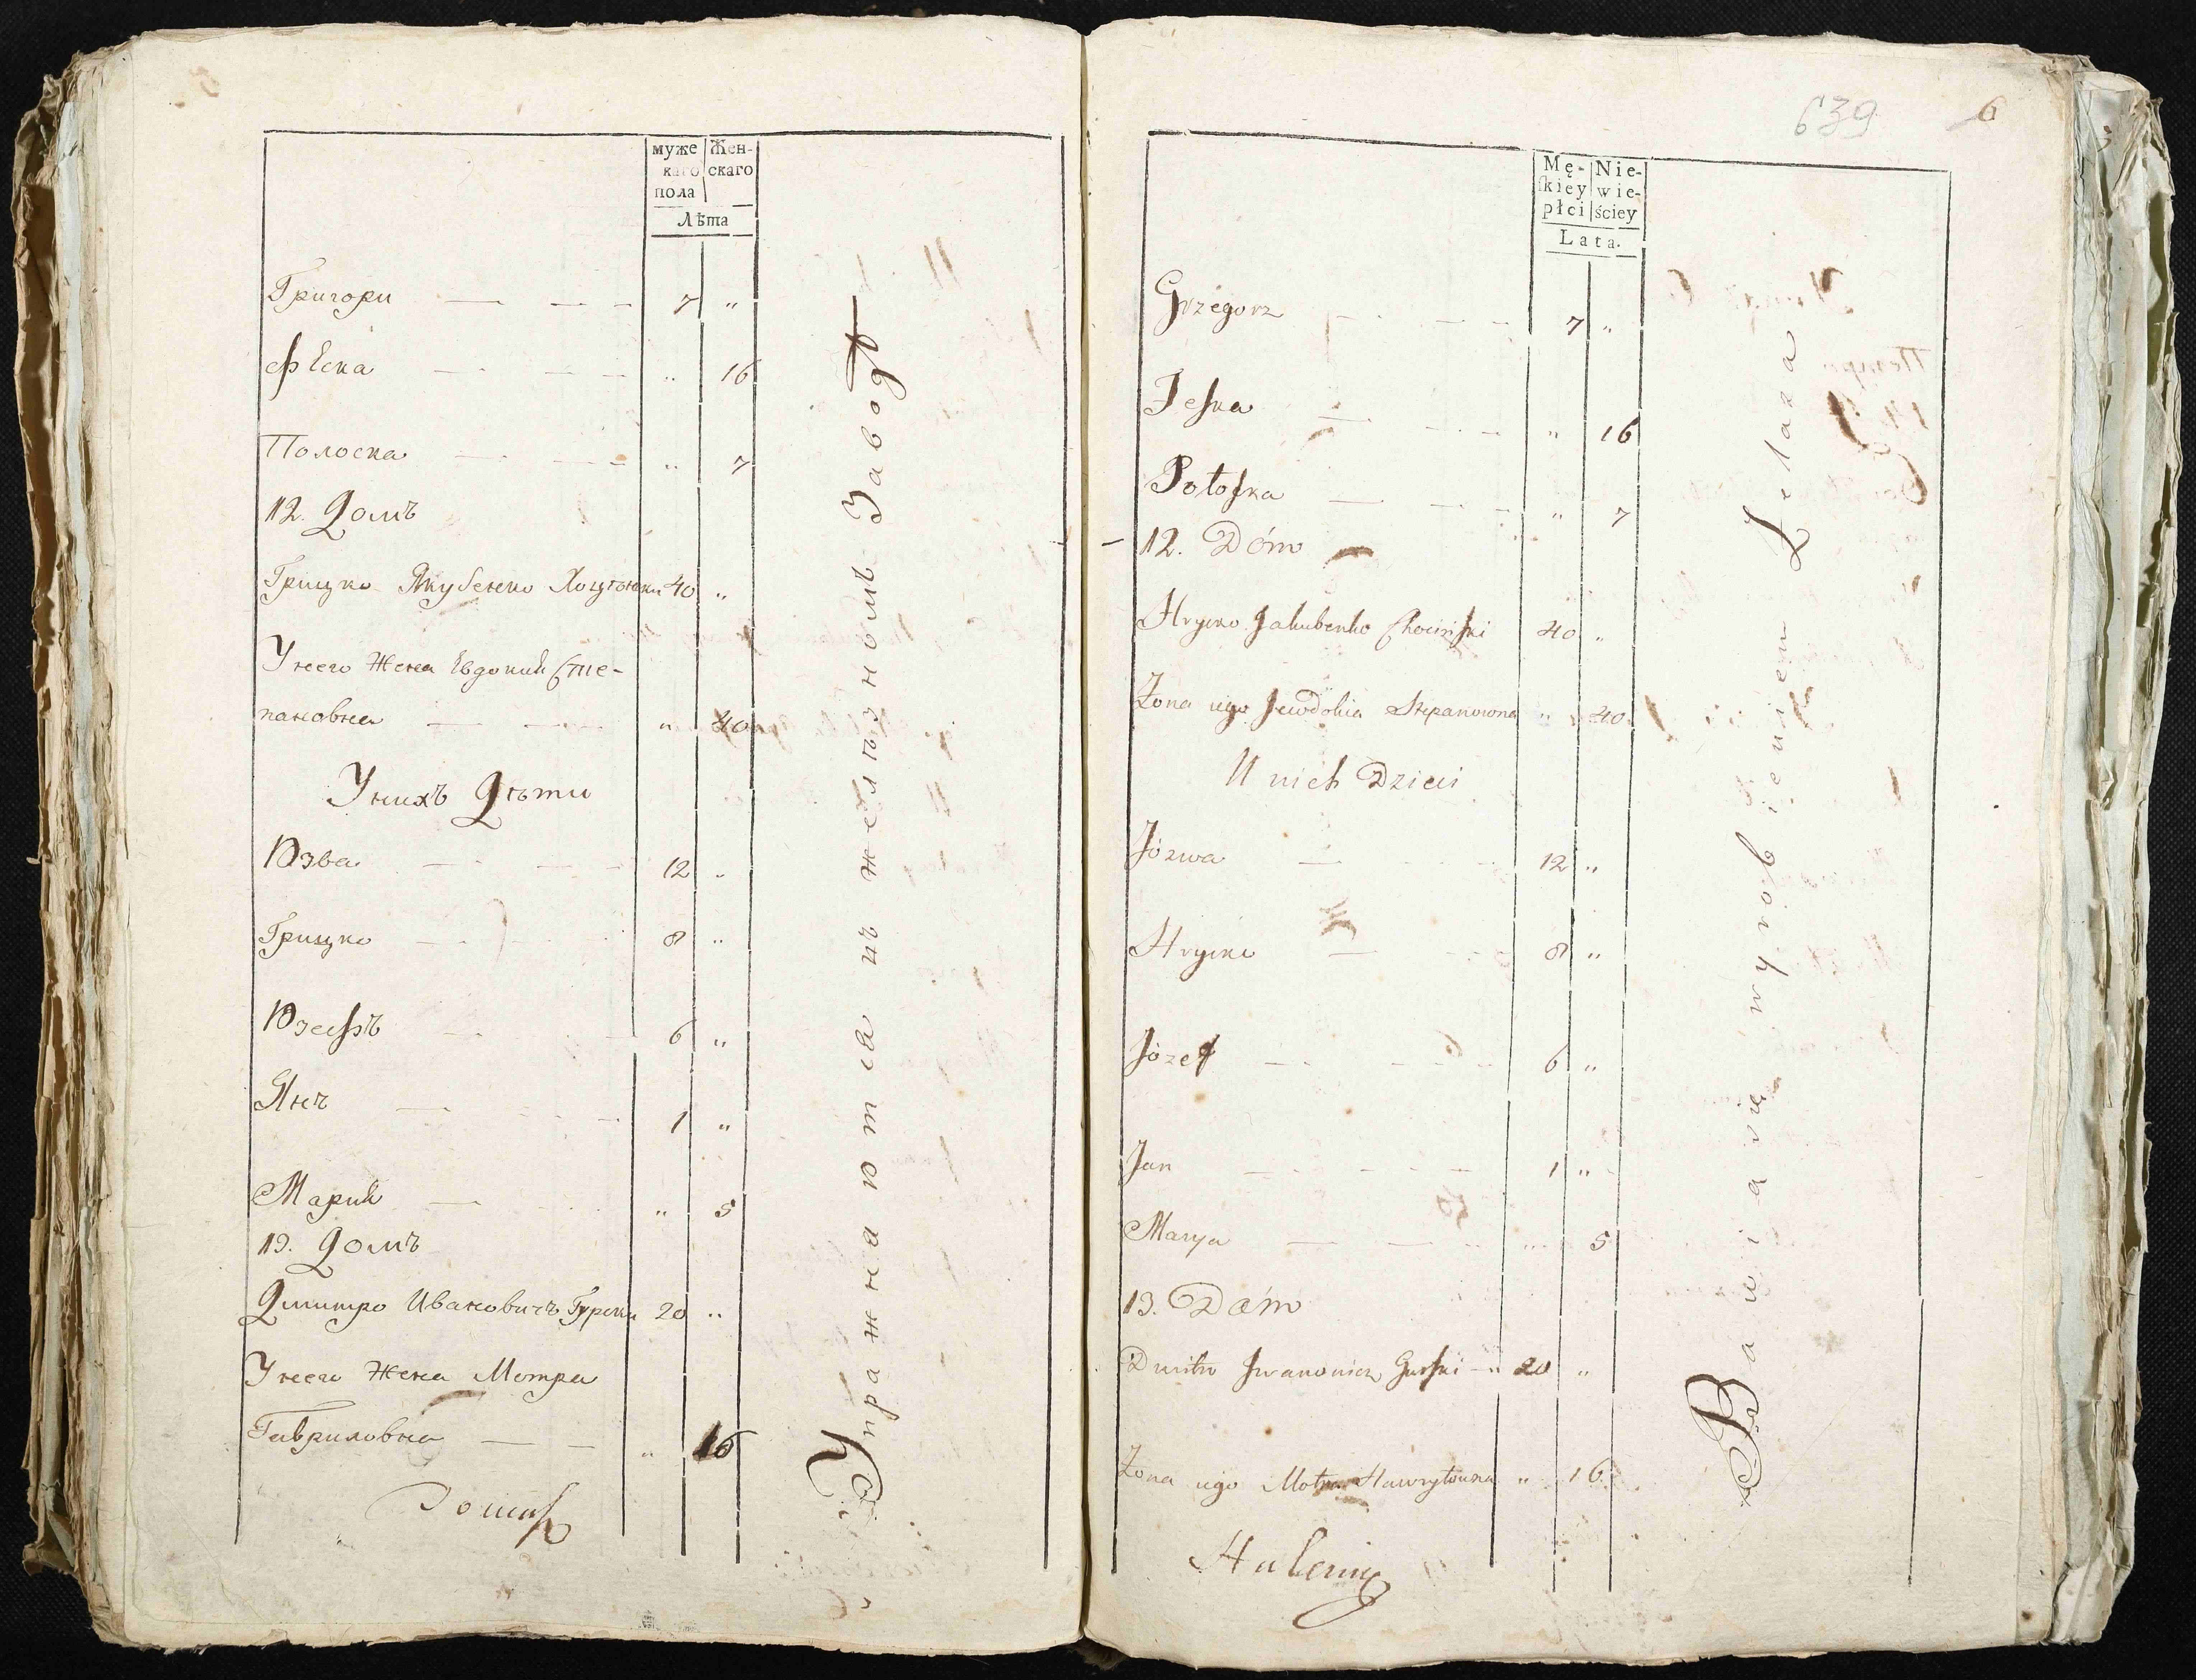 муже
каго
пола
Жен-
скаго
Лѣта
Григори 7 "
Феска " 16
Полоска " 7
12. Домъ
Грицко Якубенко 40 "
У него Жена Евдокия Сте-
пановна " 40
У нихъ Дѣти
Юзва 12 "
Грицко 8 "
Юзефъ 6 "
Янъ 1 "
Мария " 5
13. Домъ
Дмитро Ивановичъ Гурски 20 "
У него Жена Мотра
Гавриловна " 16
Упражнаютца въ желѣзномъ Заводѣ
639 6
Mę-
skiey
płci
Nie-
wie-
ściey
Lata.
Grzegorz 7 "
Feska " 16
Połoska " 7
12. Dóm
Hrycko Jakubenko Chociński 40 "
Żona iego Jewdokia Stepanowna " 40
U nich Dzieci
Józwa 12 "
Hrycko 8 "
Józef 6 "
Jan 1 "
Marya " 5
13. Dóm
Dmitro Jwanowicz Gurski " 20 "
Żona iego Motra Hawryłowna " 16
Bawią się wyrobieniem Żelaza